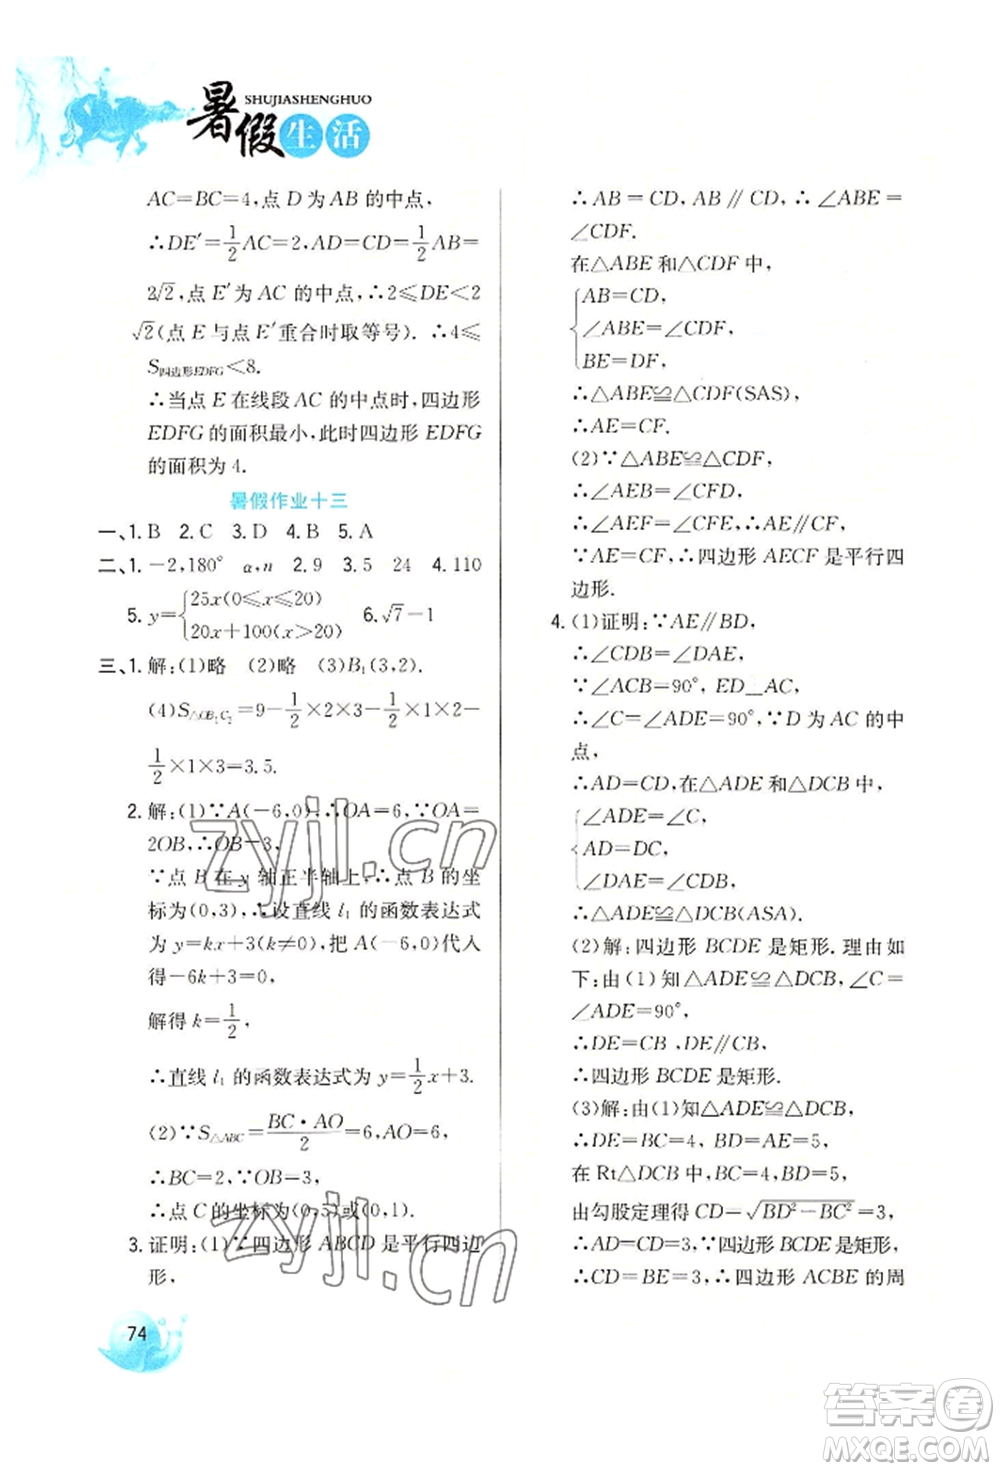 SHUJIASHENGHUO
暑假生活
AC=BC=4,点 D 为 AB 的中点,
∴DE′=1/2AC=2,AD=CD=1/2AB=
2√2,点 E′为 AC 的中点,∴2≤DE<2
√2(点 E 与点 E′重合时取等号). ∴4≤
S四边形EDFG<8.
∴当点 E 在线段 AC 的中点时,四边形
EDFG 的面积最小,此时四边形 EDFG
的面积为 4.
暑假作业十三
一、1. B 2. C 3. D 4. B 5. A
二、1. −2,180° α,n 2. 9 3. 5 24 4. 110
5. y={25x(0≤x≤20)
20x+100(x>20) 6. √7−1
三、1. 解:(1)略 (2)略 (3)B₁(3,2).
(4)S△OB₂C₂=9−1/2×2×3−1/2×1×2−
1/2×1×3=3.5.
2. 解:(1)∵A(−6,0),∴OA=6,∵OA=
2OB,∴OB=3,
∵点 B 在 y 轴正半轴上,∴点 B 的坐
标为(0,3),∴设直线 l₁ 的函数表达式
为 y=kx+3(k≠0),把 A(−6,0)代入
得−6k+3=0,
解得 k=1/2,
∴直线 l₁ 的函数表达式为 y=1/2x+3.
(2)∵S△ABC=BC·AO/2=6,AO=6,
∴BC=2,∵OB=3,
∴点 C 的坐标为(0,5)或(0,1).
3. 证明:(1)∵四边形 ABCD 是平行四边
形,
∴AB=CD,AB∥CD,∴∠ABE=
∠CDF.
在△ABE 和△CDF 中,
{AB=CD,
∠ABE=∠CDF,
BE=DF,
∴△ABE≌△CDF(SAS),
∴AE=CF.
(2)∵△ABE≌△CDF,
∴∠AEB=∠CFD,
∴∠AEF=∠CFE,∴AE∥CF,
∵AE=CF,∴四边形 AECF 是平行四
边形.
4. (1)证明:∵AE∥BD,
∴∠CDB=∠DAE,
∵∠ACB=90°,ED⊥AC,
∴∠C=∠ADE=90°,∵D 为 AC 的中
点,
∴AD=CD,在△ADE 和△DCB 中,
{∠ADE=∠C,
AD=DC,
∠DAE=∠CDB,
∴△ADE≌△DCB(ASA).
(2)解:四边形 BCDE 是矩形.理由如
下:由(1)知△ADE≌△DCB,∠C=
∠ADE=90°,
∴DE=CB,DE∥CB,
∴四边形 BCDE 是矩形.
(3)解:由(1)知△ADE≌△DCB,
∴DE=BC=4,BD=AE=5,
在 Rt△DCB 中,BC=4,BD=5,
由勾股定理得 CD=√BD²−BC²=3,
∴AD=CD=3,∵四边形 BCDE 是矩形,
∴CD=BE=3,∴四边形 ACBE 的周
74
zyjl.cn
zyjl.cn
答案圈
MXQE.COM